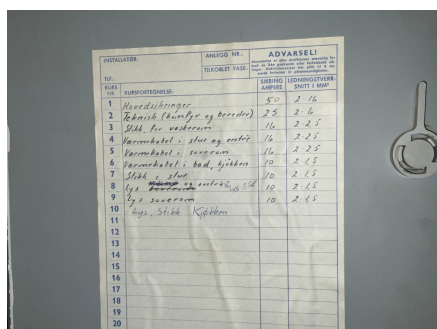 INSTALLATØR:
ANLEGG NR.:
ADVARSEL!
TILKOBLET FASE:
TLF.:
KURS NR. KURSFORTEGNELSE: SIKRING AMPERE LEDNINGSTVERRSNITT I MM²
1 Hovedsikringer 50 2·16
2 Teknisk (komfyr og bereder) 25 2·6
3 Stikk for vaskerom 16 2·2.5
4 Varmekabel i stue og entré 16 2·2.5
5 Varmekabel i soverom 16 2·2.5
6 Varmekabel i bad, kjøkken 10 2·1.5
7 Stikk i stue 10 2·1.5
8 Lys og entré 10 2·1.5
9 Lys soverom 10 2·1.5
10 Lys, Stikk Kjøkken
11
12
13
14
15
16
17
18
19
20